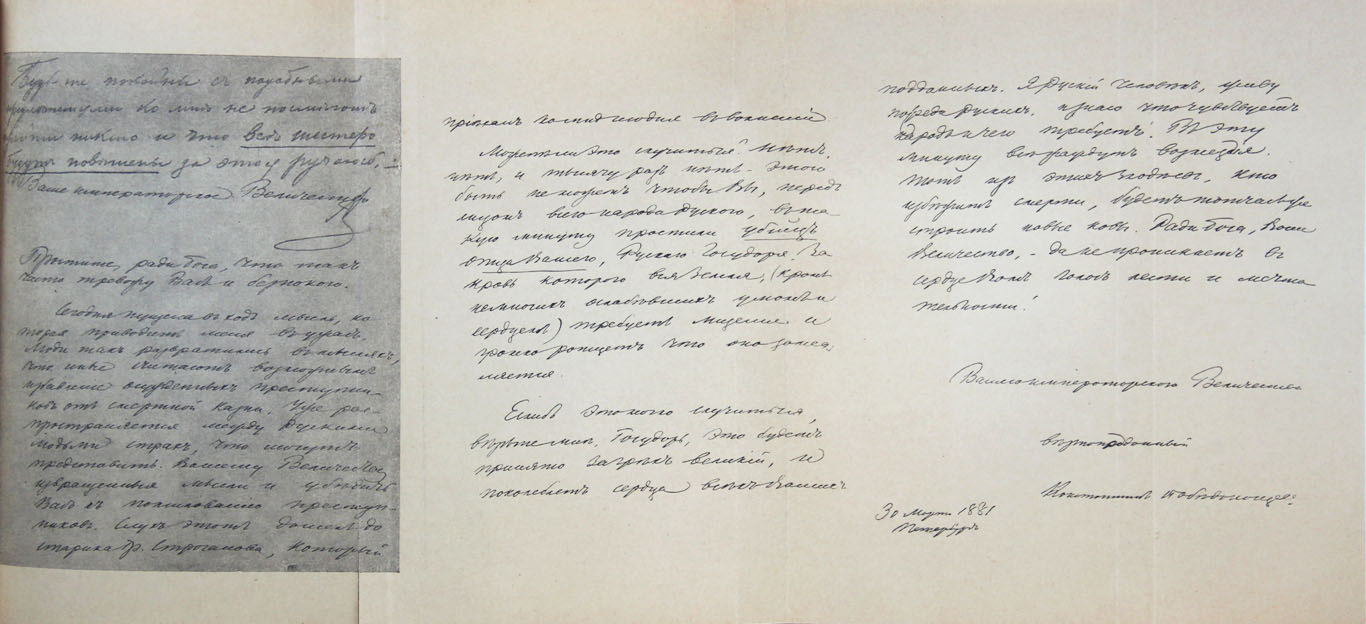 Будьте покойны съ подобными
предложеніями ко мнѣ не посмѣютъ
прійти никто и что всѣ шестеро
будутъ повѣшены за это я ручаюсь,
Ваше императорское Величество
Простите, ради Бога, что такъ
часто тревожу Васъ и безпокою.
Сегодня пущена въ ходъ мысль, ко
торая приводитъ меня въ ужасъ.
Люди такъ развратились въ мысляхъ,
что иные считаютъ возможнымъ
избавленіе осужденныхъ преступни
ковъ отъ смертной казни. Уже рас
пространяется между Русскими
людьми страхъ, что могутъ
представить Вашему Величеству
извращенныя мысли и убѣдить
Васъ къ помилованію преступ
никовъ. Слухъ этотъ дошелъ до
старика гр. Строганова, который
пріѣхалъ ко мнѣ сегодня въ волненіи
Можетъ ли это случиться? Нѣтъ,
нѣтъ, и тысячу разъ нѣтъ – этого
быть не можетъ чтобы Вы, передъ
лицомъ всего народа Русскаго, въ та
кую минуту простили убійцъ
отца Вашего, Русскаго Государя. За
кровь котораго вся земля, (кромѣ
немногихъ ослабѣвшихъ умомъ и
сердцемъ) требуетъ мщенія и
громко ропщетъ что оно замед
ляется.
Еслибъ это могло случиться,
вѣрьте мнѣ, Государь, это будетъ
принято за грѣхъ великій, и
поколеблетъ сердца всѣхъ Вашихъ
подданныхъ. Я Русскій человѣкъ, живу
посреди Русскихъ и знаю что чувствуетъ
народъ и чего требуетъ. Въ эту
минуту всѣ жаждутъ возмездія.
Тотъ изъ этихъ злодѣевъ, кто
избѣжитъ смерти, будетъ тотчасъ же
строить новые ковы. Ради Бога, Ваше
Величество, – да не проникаетъ въ
сердце Вамъ голосъ лести и мечта
тельности!
Вашего императорскаго Величества
вѣрноподданный
Константинъ Побѣдоносцевъ
30 Марта 1881
Петербургъ